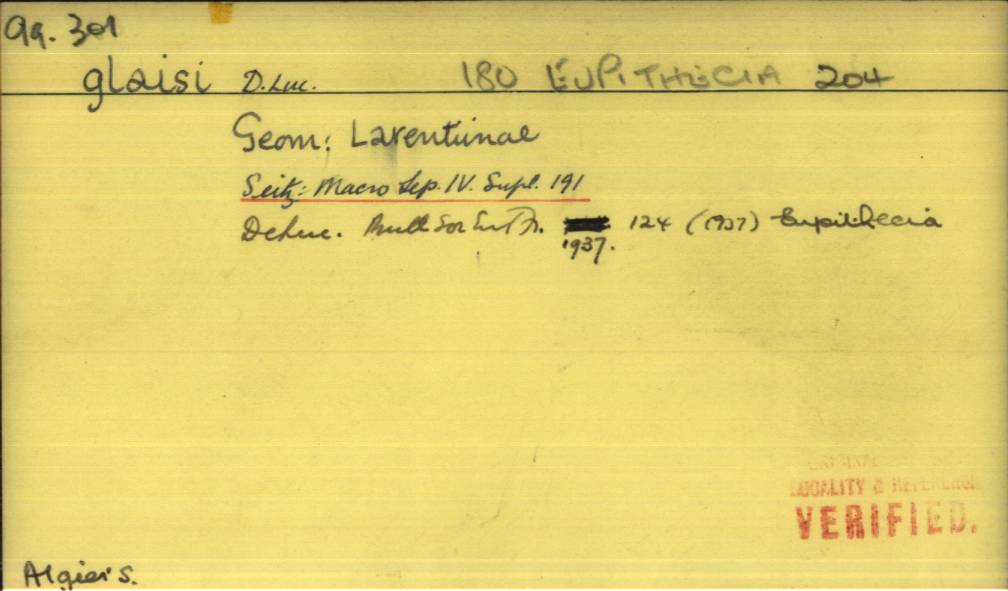 99. 301
glaisi D.Luc. 180 EUPITHECIA 204
Geom: Larentiinae
Seitz: Macro Lep. IV. Supl. 191
DeLuc. Bull Soc Ent Fr. 124 (1937) Eupithecia
1937.
ORIGINAL
LOCALITY & REFERENCE
VERIFIED.
Algiers.